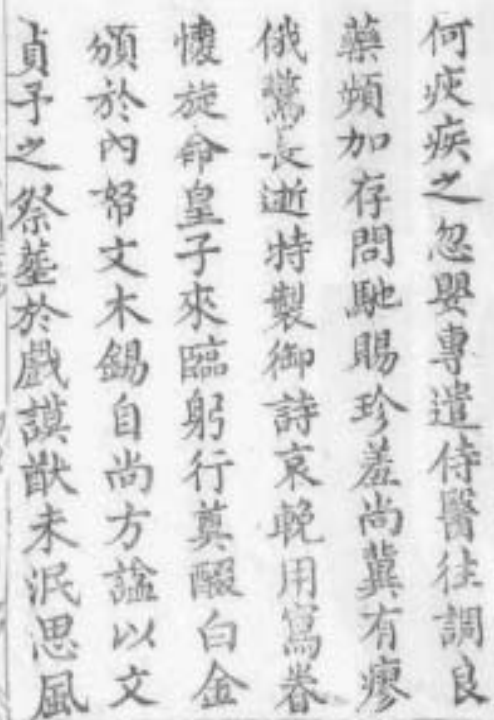 何疢疾之忽嬰專遣侍醫往調良
藥頻加存問馳賜珍羞尚冀有瘳
俄驚長逝特製御詩哀輓用寫眷
懷旋命皇子來臨躬行奠醊白金
頒於內帑文木錫自尚方諡以文
貞予之祭塟於戲謨猷未泯思風